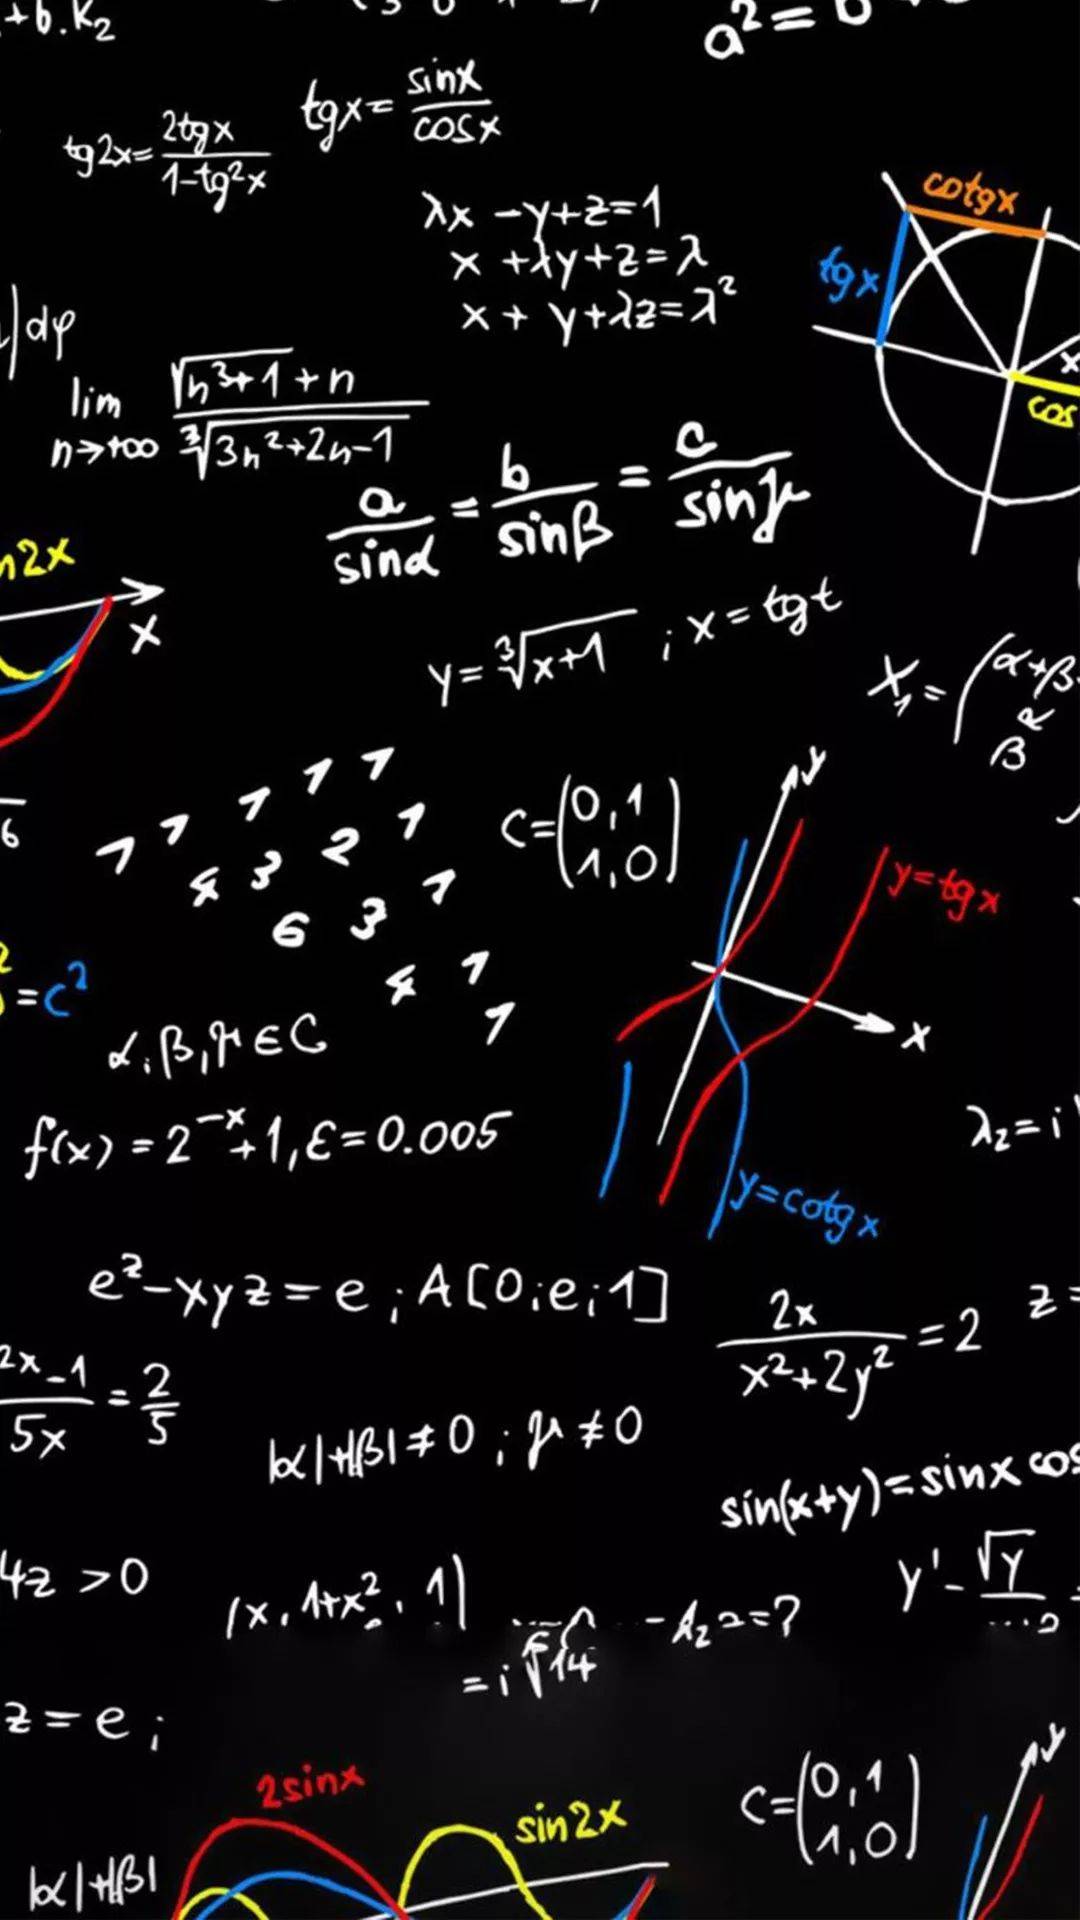 +b.K₂
a² =
tg2x = 2tgx / 1-tg²x
tgx = sinx / cosx
λx - y + z = 1
x + λy + z = λ
x + y + λz = λ²
cotgx
tgx
x
cos
dφ
lim n→+∞ √n³+1 + n / ∛3n²+2n-1
a / sinα = b / sinβ = c / sinγ
n2x
x
y = ∛x+1 ; x = tgt
X₁ = (α+β
α
β
6
1 1 1 1 1
4 3 2 1
6 3 1
4 1
1
C = (0,1
1,0)
y
y=tgx
x
y=cotgx
² = c²
α,β,γ ∈ C
f(x) = 2⁻ˣ+1, ε = 0.005
λ₂ = i
eᶻ - xyz = e ; A[0;e;1]
2x / x²+2y² = 2
z =
2x-1 / 5x = 2/5
|α|+|β| ≠ 0 ; γ ≠ 0
sin(x+y) = sinx cos
4z > 0
(x, 1+x², 1)
= i
14
= ?
y' - √y
z = e ;
2sinx
sin2x
C = (0,1
1,0)
y
|α|+|β|